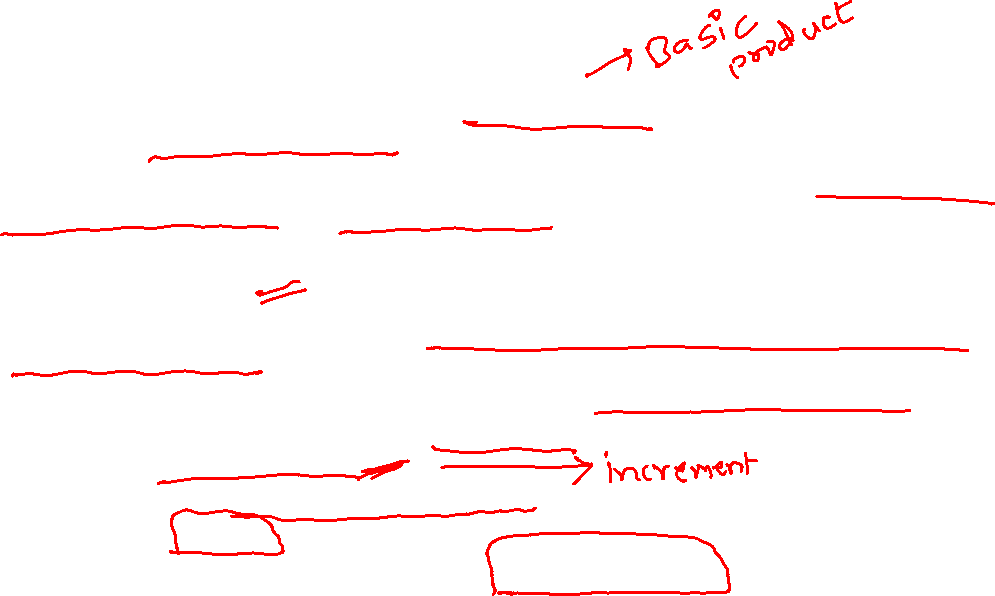 Basic
product
increment